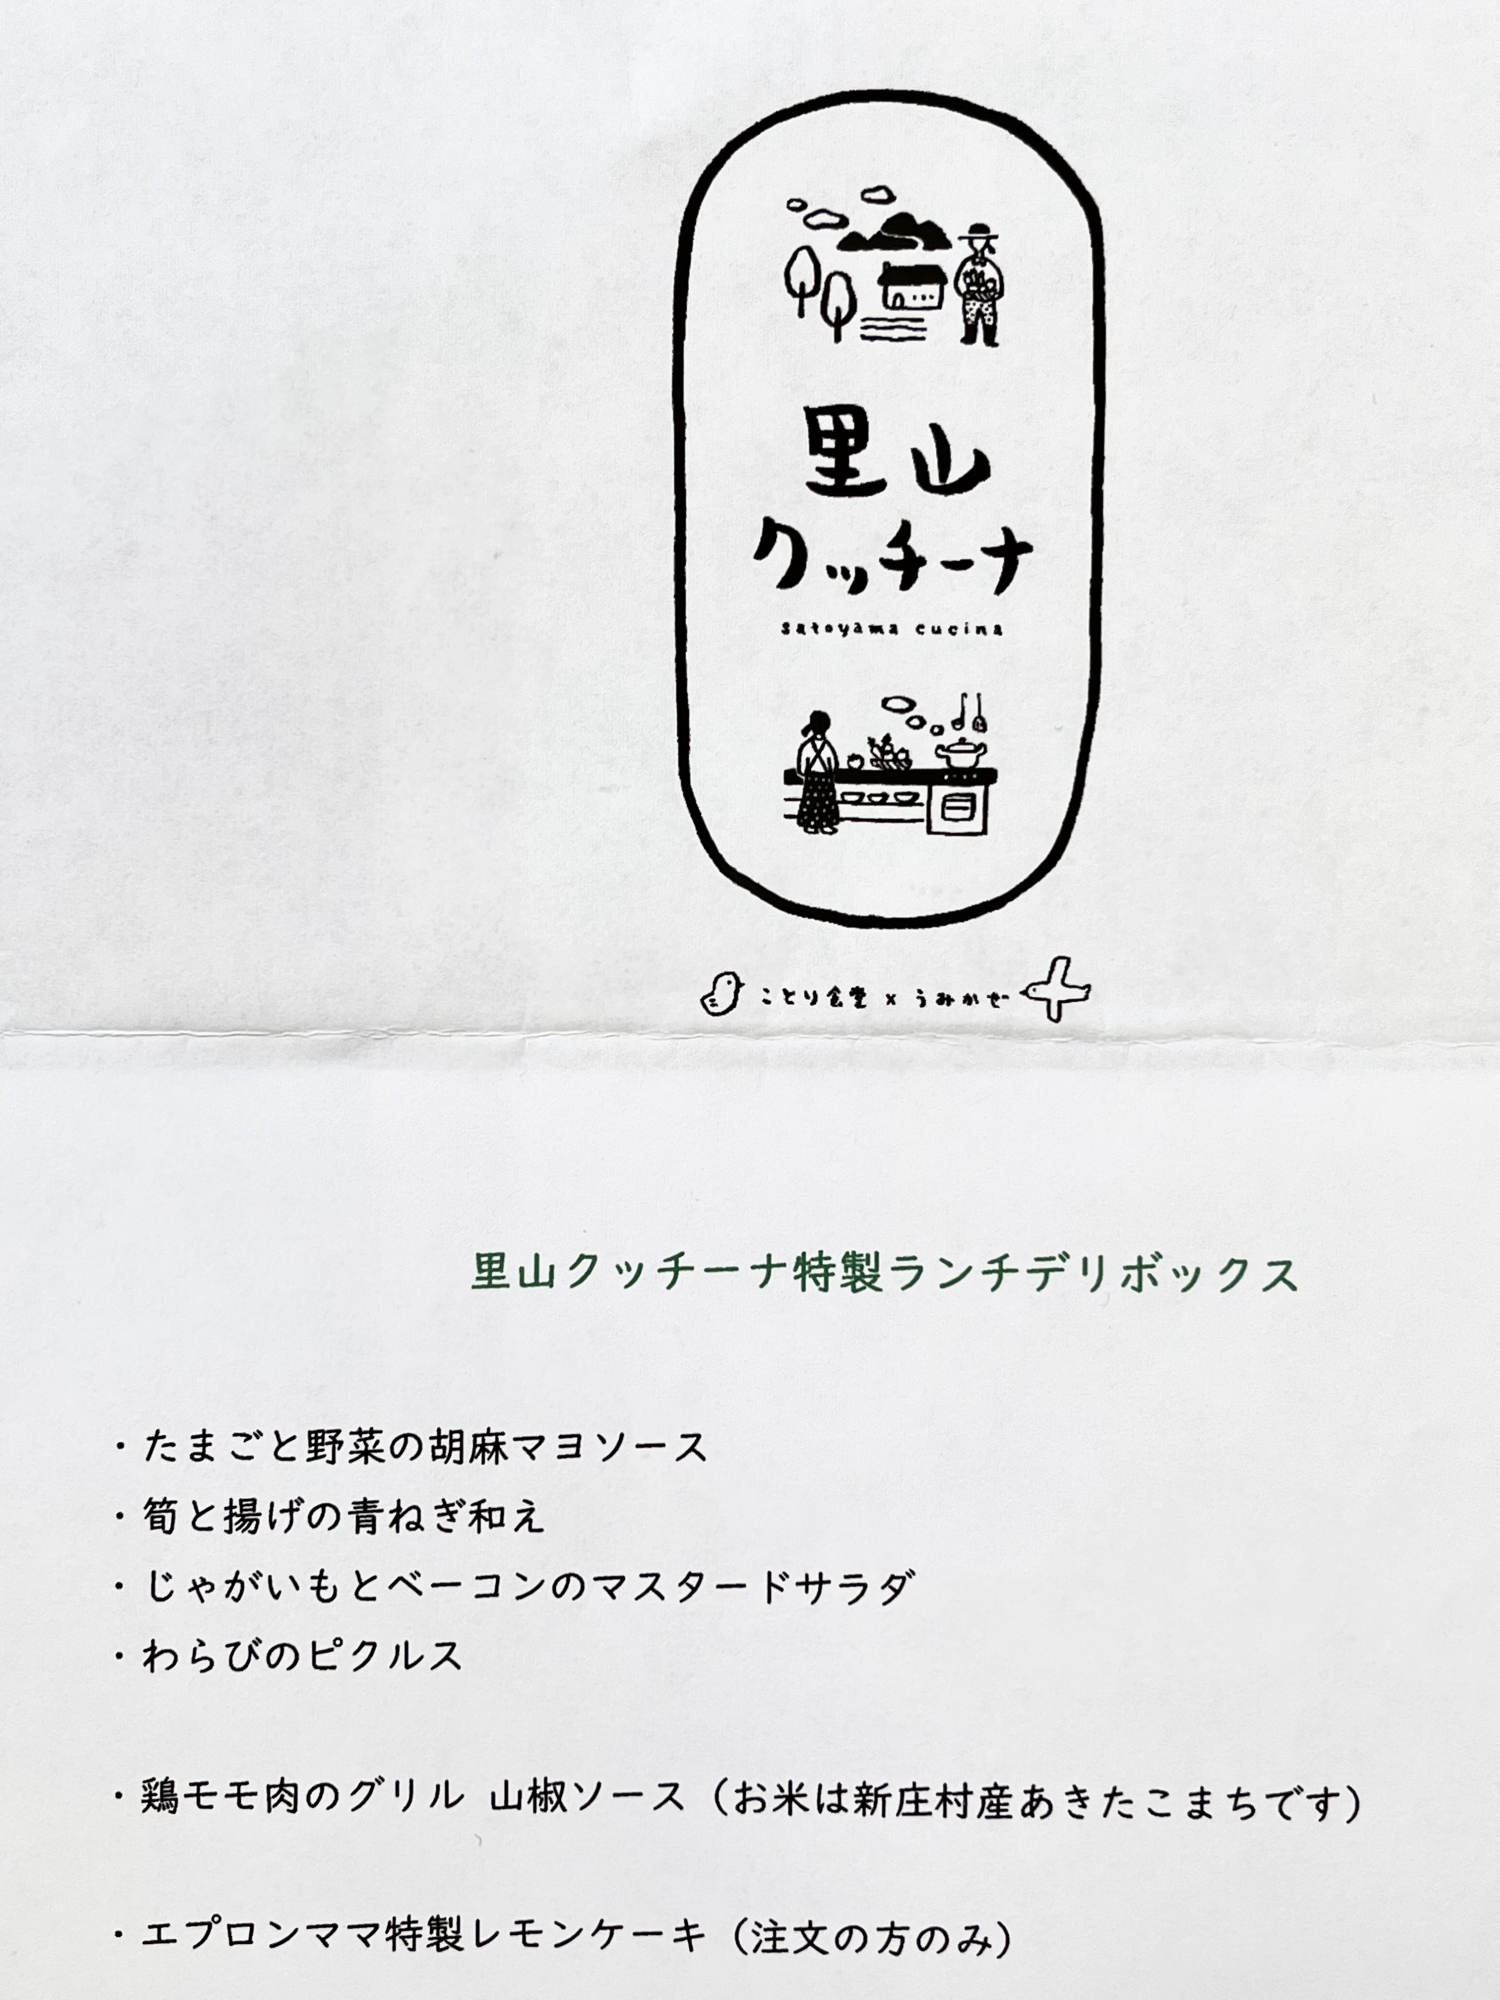 里山
クッチーナ
satoyama cucina
ことり食堂 x うみかぜ
里山クッチーナ特製ランチデリボックス
・たまごと野菜の胡麻マヨソース
・筍と揚げの青ねぎ和え
・じゃがいもとベーコンのマスタードサラダ
・わらびのピクルス
・鶏モモ肉のグリル 山椒ソース（お米は新庄村産あきたこまちです）
・エプロンママ特製レモンケーキ（注文の方のみ）